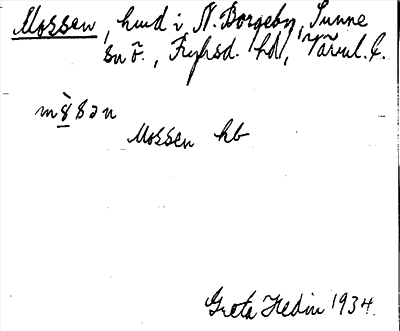 Mossen, hmd i N. Borgeby, Sunne
sn o., Fryksd. hd, Värml. l.
mo̱̊sən
Mossen hb
Greta Hedin 1934.